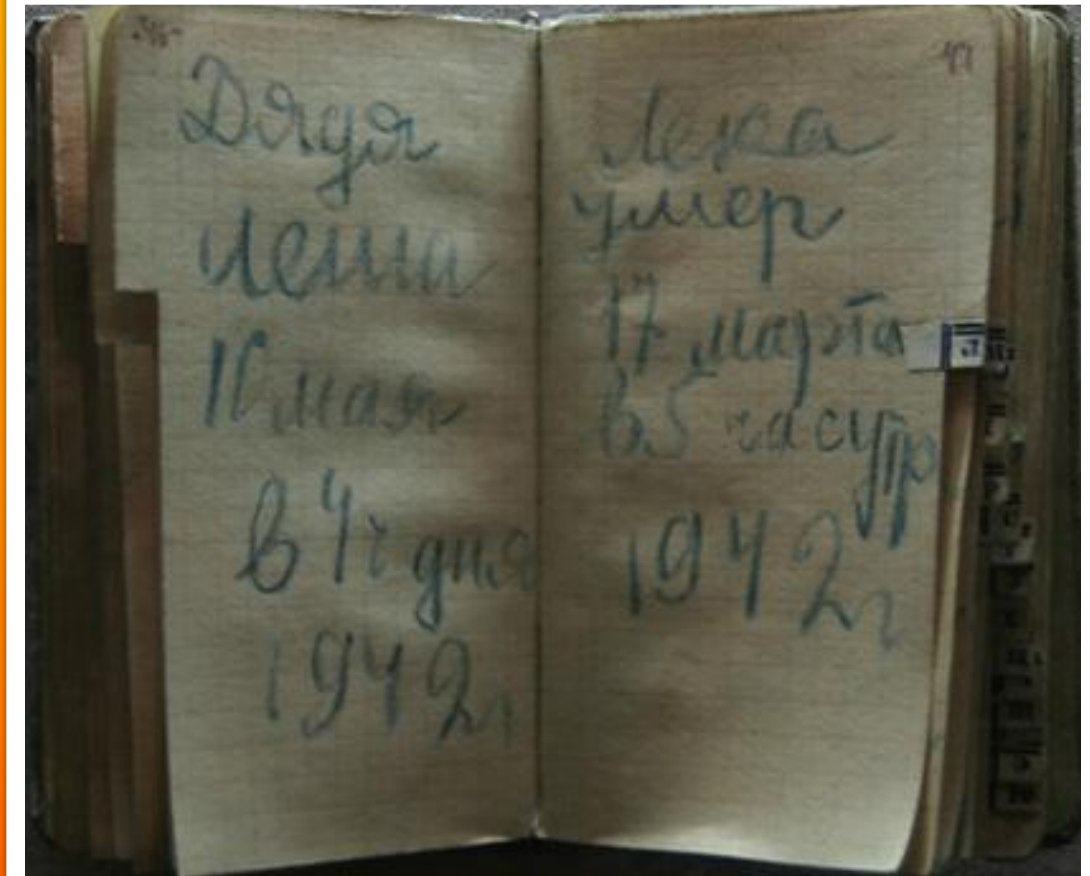 Дядя
Леша
10 мая
в 4 ч дня
1942 г
Лека
умер
17 марта
в 5 часутр
1942 г
Л